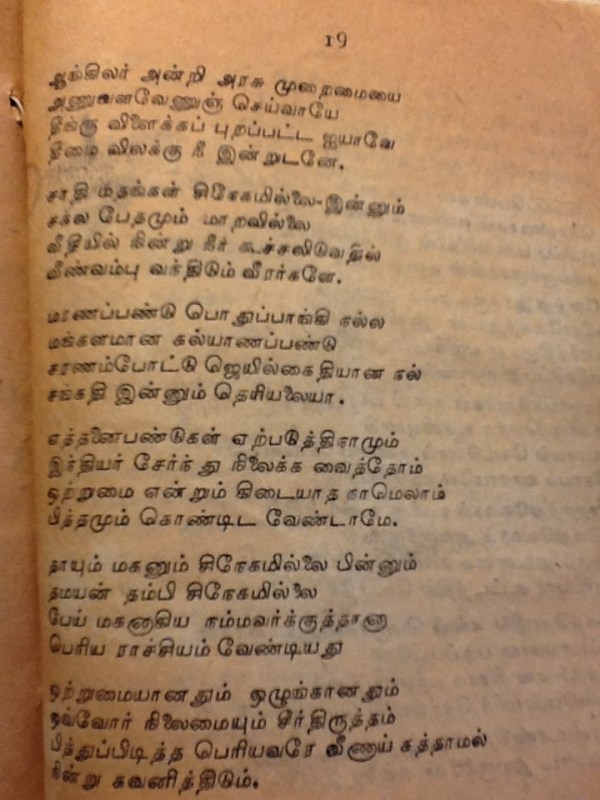 19
ஆங்கிலர் அன்றி அரசு முறைமையை
அணுவளவேணுஞ் செய்வாயே
தீங்கு விளைக்கப் புறப்பட்ட ஐயாவே
தீமை விலக்கு நீ இன்றுடனே.
சாதி மதங்கள் சிநேகமில்லை-இன்னும்
சகல பேதமும் மாறவில்லை
வீதியில் நின்று நீர் கூச்சலிடுவதில்
வீண்வம்பு வந்திடும் வீரர்களே.
மரணப்பண்டு பொதுப்பாங்கி நல்ல
மங்களமான கல்யாணப்பண்டு
சரணம்போட்டு ஜெயில்கைதியான நல்
சங்கதி இன்னும் தெரியலையா.
எத்தனைபண்டுகள் ஏற்படுத்திநாமும்
இந்தியர் சேர்ந்து நிலைக்க வைத்தோம்
ஒற்றுமை என்றும் கிடையாத நாமெலாம்
பித்தமும் கொண்டிட வேண்டாமே.
தாயும் மகனும் சிநேகமில்லை பின்னும்
தமயன் தம்பி சிநேகமில்லை
பேய் மகனாகிய நம்மவர்க்குத்தானா
பெரிய ராச்சியம் வேண்டியது
ஒற்றுமையானதும் ஒழுங்கானதும்
ஒவ்வோர் நிலைமையும் சீர்திருத்தம்
பித்துப்பிடித்த பெரியவரே வீணாய் கத்தாமல்
நின்று கவனித்திடும்.